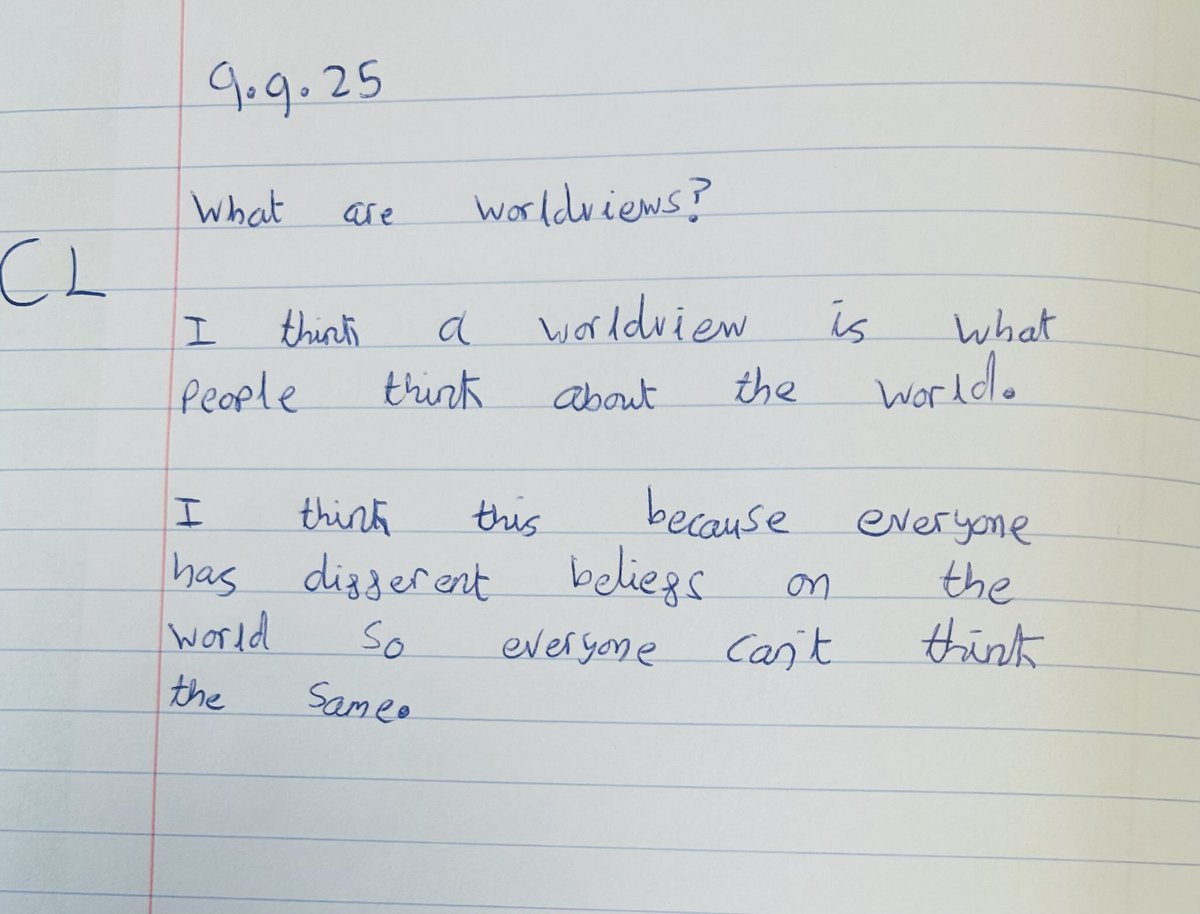 9.9.25
What are worldviews?
CL
I think a worldview is what
people think about the world.
I think this because everyone
has different beliefs on the
world so everyone can't think
the same.